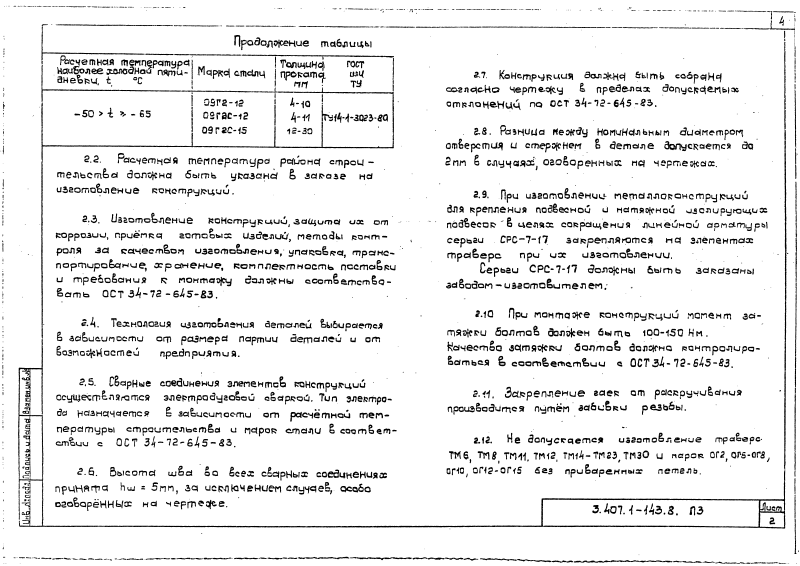 4
Продолжение таблицы
Расчетная температура наиболее холодной пятидневки, t °C
Марка стали
Толщина проката мм
ГОСТ
ТУ
-50 > t ≥ -65
09Г2-12
4-10
09Г2С-12
4-11
ТУ14-1-3023-80
09Г2С-15
12-30
2.2. Расчетная температура района строи-
тельства должна быть указана в заказе на
изготовление конструкций.
2.3. Изготовление конструкций, защита их от
коррозии, приёмка готовых изделий, методы конт-
роля за качеством изготовления, упаковка, транс-
портирование, хранение, комплектность поставки
и требования к монтажу должны соответство-
вать ОСТ 34-72-645-83.
2.4. Технология изготовления деталей выбирается
в зависимости от размера партии деталей и от
возможностей предприятия.
2.5. Сварные соединения элементов конструкций
осуществляются электродуговой сваркой. Тип электро-
да назначается в зависимости от расчётной тем-
пературы строительства и марок стали в соответ-
ствии с ОСТ 34-72-645-83.
2.6. Высота шва во всех сварных соединениях
принята hш = 5мм, за исключением случаев, особо
оговорённых на чертеже.
2.7. Конструкция должна быть собрана
согласно чертежу в пределах допускаемых
отклонений по ОСТ 34-72-645-83.
2.8. Разница между номинальным диаметром
отверстия и стержнем в детале допускается до
2мм в случаях, оговоренных на чертежах.
2.9. При изготовлении металлоконструкций
для крепления подвесной и натяжной изолирующих
подвесок в целях сокращения линейной арматуры
серьги СРС-7-17 закрепляются на элементах
траверс при их изготовлении.
Серьги СРС-7-17 должны быть заказаны
заводом-изготовителем.
2.10 При монтаже конструкций момент за-
тяжки болтов должен быть 100-150 Нм.
Качество затяжки болтов должно контролиро-
ваться в соответствии с ОСТ 34-72-645-83.
2.11. Закрепление гаек от раскручивания
производится путём забивки резьбы.
2.12. Не допускается изготовление траверс
ТМ6, ТМ8, ТМ11, ТМ12, ТМ14-ТМ23, ТМ30 и марок ОГ2, ОГ5-ОГ8,
ОГ10, ОГ12-ОГ15 без приваренных петель.
Инв. № подл. Подпись и дата Взам. инв. №
3.407.1-143.8. ПЗ
Лист
2